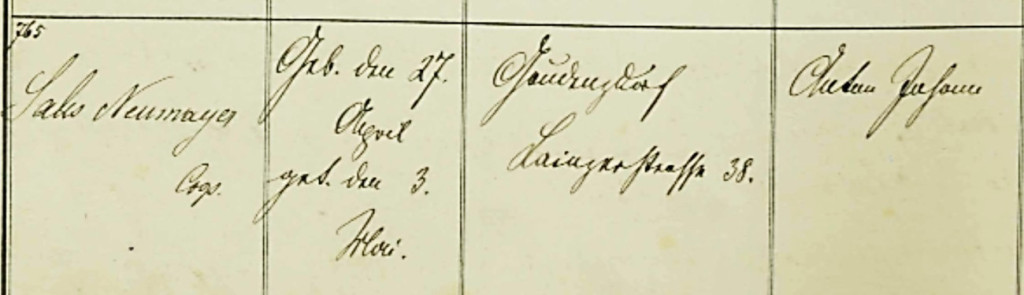 765
Sales Neumayer
Coop.
Geb. den 27.
April
get. den 3.
Mai.
Gaudenzdorf
Lainzerstrasse 38.
Anton Johann